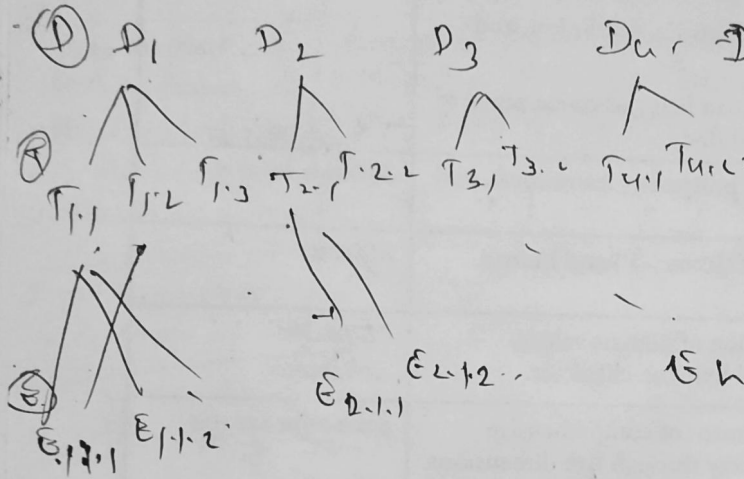 D D1 D2 D3 D4
T T1.1 T1.2 T1.3 T2.1 T.2.2 T3.1 T3. T4.1 T4.
E E1.1.1 E1.1.2 E2.1.1 E2.1.2..